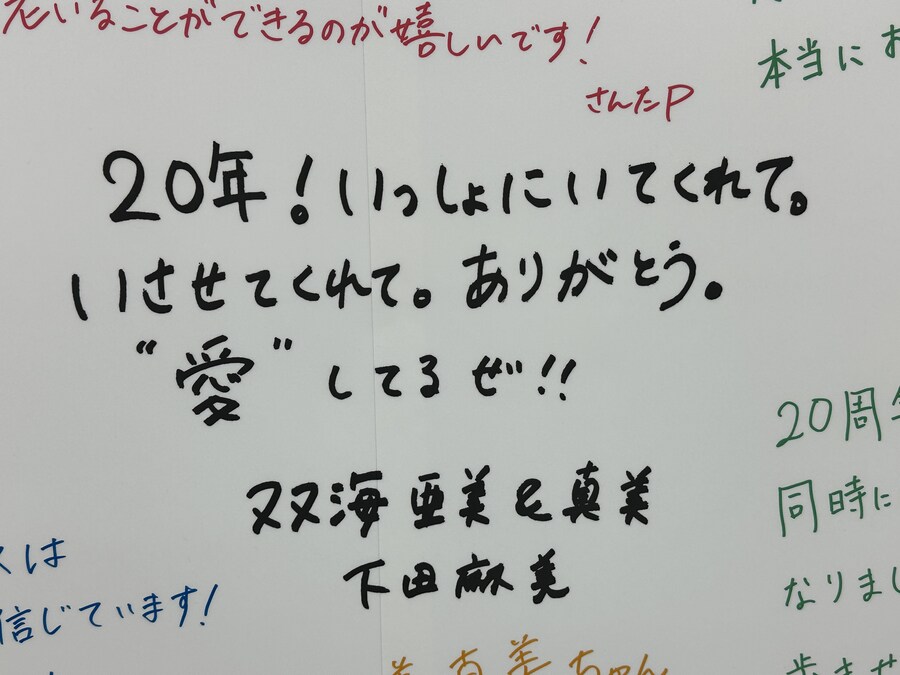 いることができるのが嬉しいです!
さんたP
本当にお
20年!いっしょにいてくれて。
いさせてくれて。ありがとう。
“愛”してるぜ!!
双海亜美&真美
下田麻美
20周年
同時に
なりまし
歩ませ
スは
信じています!
真美ちゃん